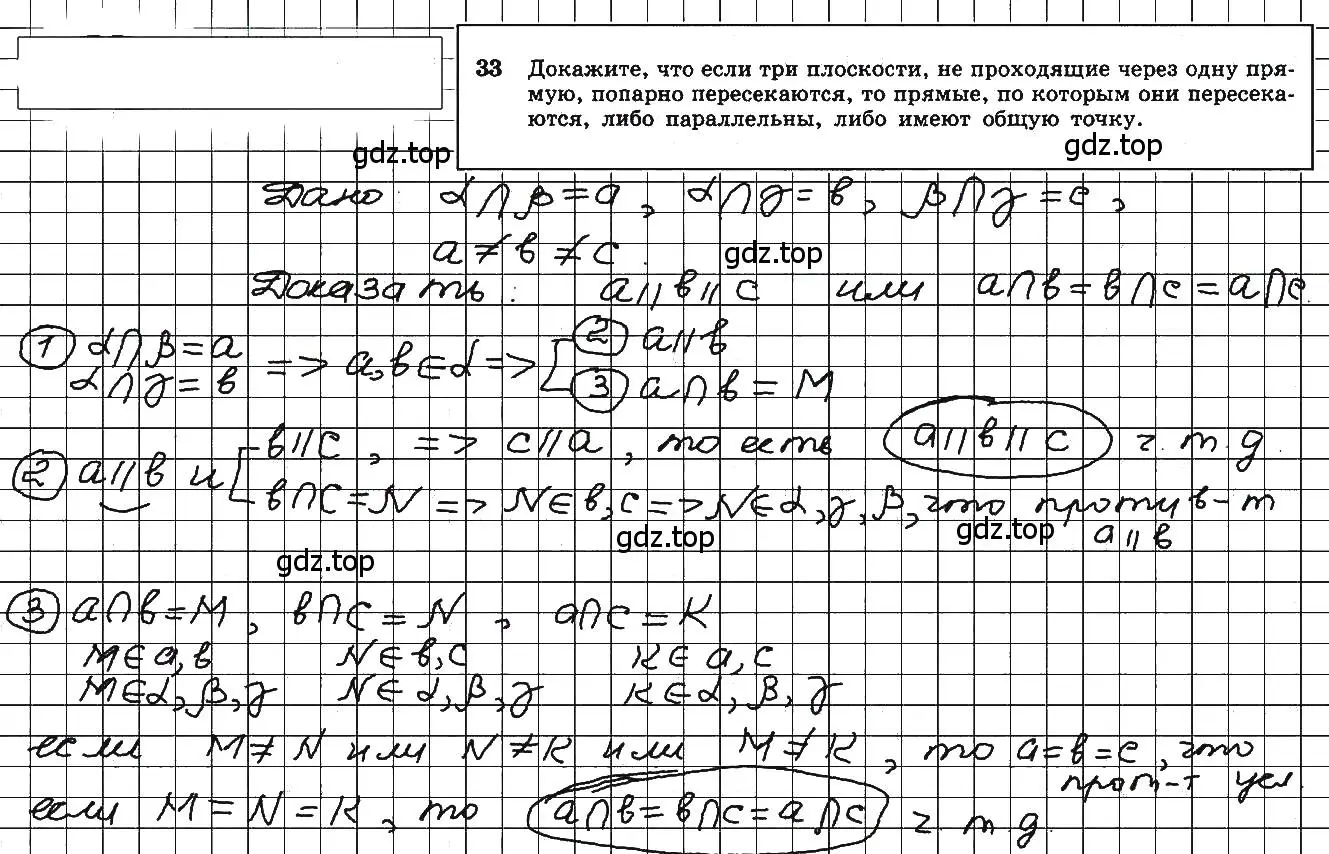 33 Докажите, что если три плоскости, не проходящие через одну пря-
мую, попарно пересекаются, то прямые, по которым они пересека-
ются, либо параллельны, либо имеют общую точку.
gdz.top
gdz.top
Дано α∩β=a, α∩γ=в, β∩γ=c,
a≠в≠c.
gdz.top
Доказать: a∥в∥c или a∩в=в∩c=a∩c
① α∩β=a
α∩γ=в
=> a,в∈α => [
② a∥в
③ a∩в=M
② a∥в и [ в∥c, => c∥a, то есть a∥в∥c ч.т.д
в∩c=N => N∈в,c => N∈α,γ,β, что против-т
a∥в
gdz.top
gdz.top
gdz.top
③ a∩в=M, в∩c=N, a∩c=K
M∈a,в N∈в,c K∈a,c
M∈α,β,γ N∈α,β,γ K∈α,β,γ
если M≠N или N≠K или M≠K, то a=в=c, что
прот-т усл.
если M=N=K, то a∩в=в∩c=a∩c ч.т.д.